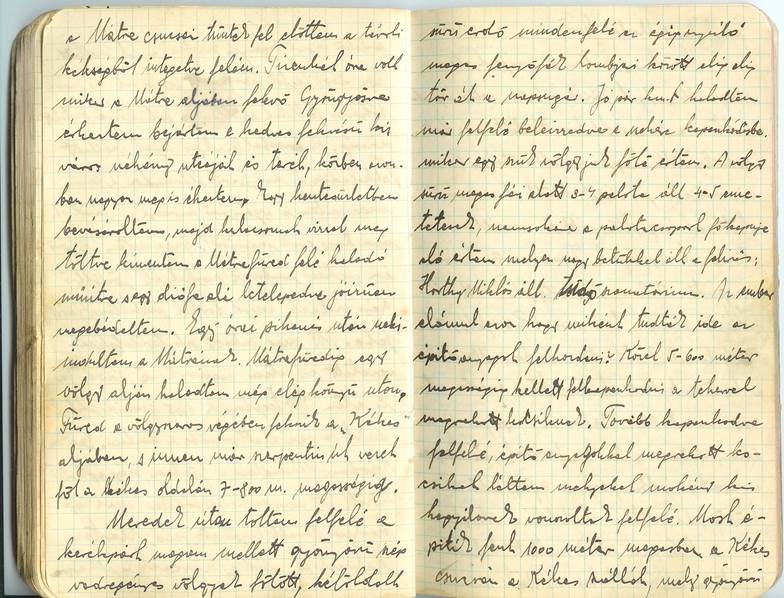 a Mátra csucsai tüntek fel előttem a távoli
kékségből integetve felém. Tizenkét óra volt
mikor a Mátra aljában fekvő Gyöngyösre
érkeztem bejártam e kedves fekvésü kis
város néhány utcáját és terét, közben azon-
ban nagyon meg is éheztem. Egy hentesüzletben
bevásároltam, majd kulacsomat vizzel meg
töltve kimentem a Mátrafüred felé haladó
müútra s egy diófa alá letelepedve jóizüen
megebédeltem. Egy órai pihenés után neki-
indultam a Mátrának. Mátrafüredig egy
völgy alján haladtam még elég könnyü uton,
Füred a völgynaros végében fekszik a „Kékes"
aljában, s innen már szerpentin út vezet
föl a Kékes oldalán 7-800 m. magasságig.
Meredek úton toltam felfelé a
kerékpárt magam mellett gyönyörü szép
vadregényes völgyek fölött, kétoldalt
sürü erdő mindenfelé az égig nyúló
magas fenyőfák lombjai között alig alig
tör át a napsugár. Jó pár km.t haladtam
már felfelé beleizzadva a nehéz kapaszkodásba,
mikor egy szük völgyjut fölé értem. A völgy
sürü magas fái alatt 3-4 palota áll 4-5 eme-
letesek, nemsokára a palotacsoport főkapuja
elé értem melyen nagy betükkel áll a felirás;
Horthy Miklós áll. tüdő szanatórium. Az ember
elámul azon hogy miként tudták ide az
épitő anyagot felhordani? Közel 5-600 méter
magasságig kellett felkapaszkodni a teherrel
megrakott kocsiknak. Tovább kapaszkodva
felfelé, épitő anyagokkal megrakott ko-
csikat láttam melyeket mokány kis
hegyilovak vonszoltak felfelé. Most é-
pitik fent 1000 méter magasban a Kékes
csucsán a Kékes szállót, mely gyönyörü